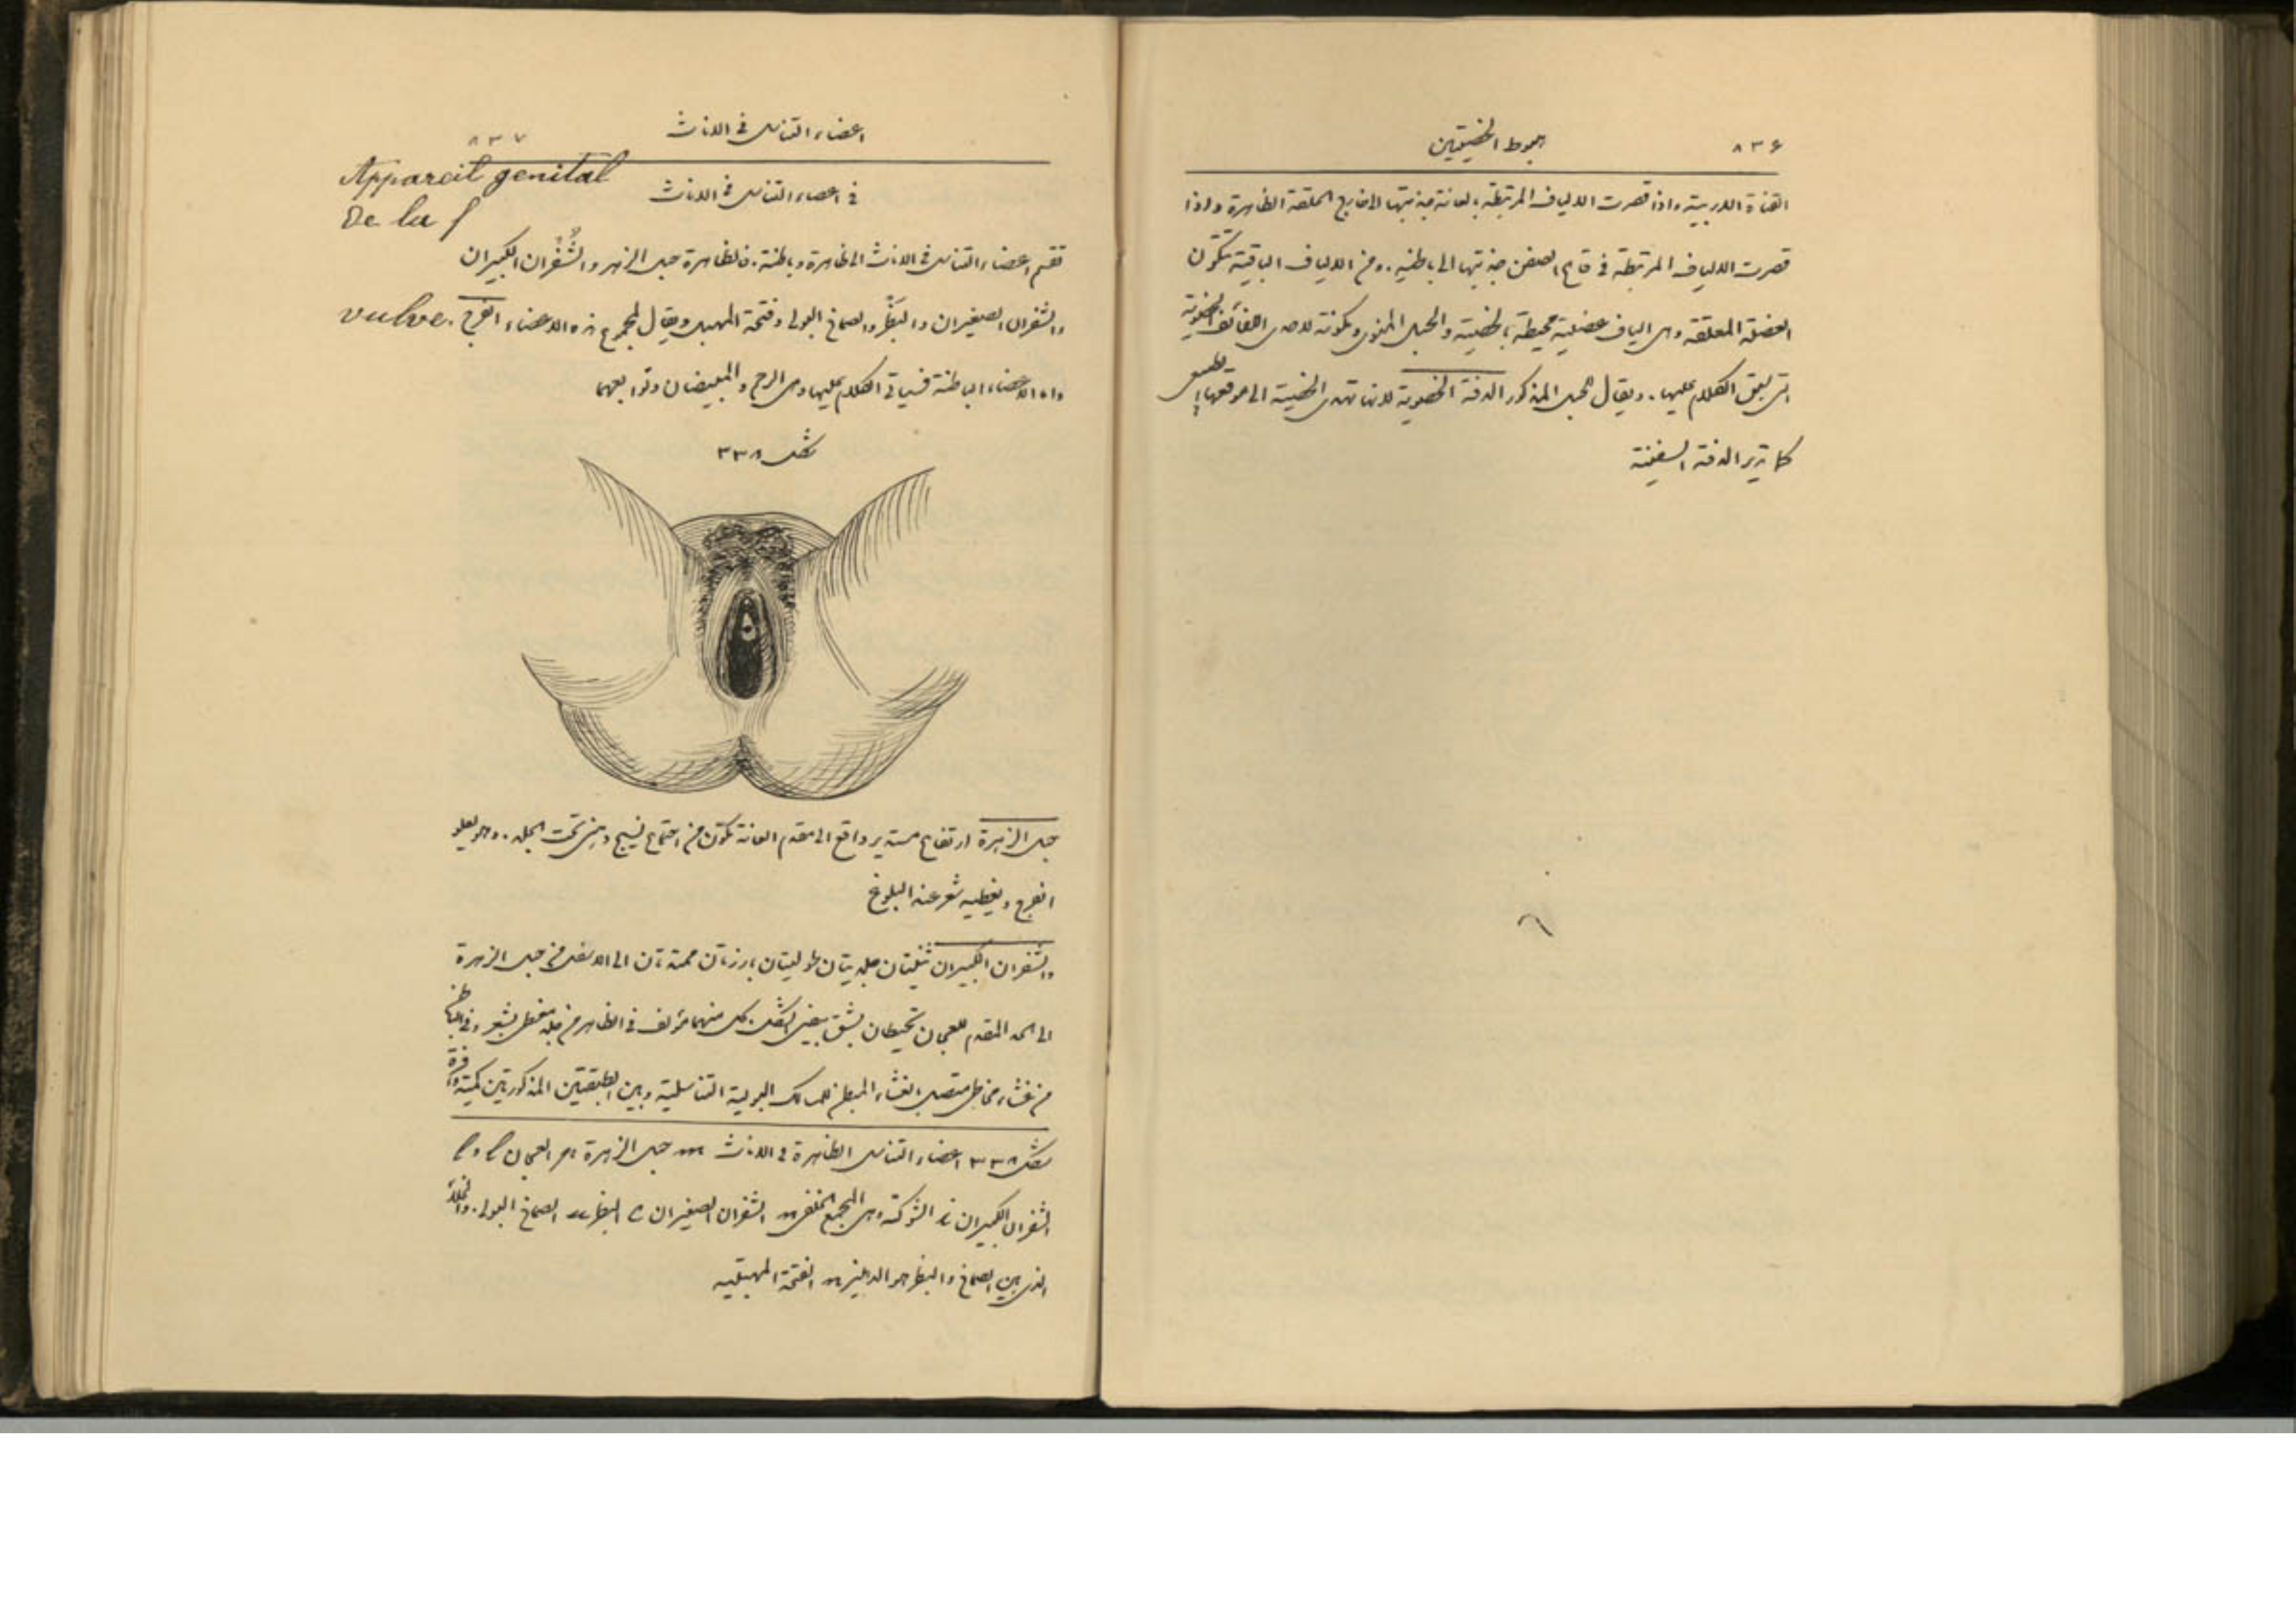 ٨٣٦
هبوط الخصيتين
القناة الاربية. واذا قصرت الالياف المرتبطة بالعانة جذبتها الى خارج الحلقة الظاهرة واذا
قصرت الالياف المرتبطة في قاع الصفن جذبتها الى باطنه. ومن الالياف الباقية تتكون
العضلة المعلقة وهي الياف عضلية محيطة بالخصية والحبل المنوي ومكونة لاحدى اللفائف الخصوية
التي سبق الكلام عليها. ويقال للحبل المذكور الدفة الخصوية لانها تهدي الخصية الى موقعها الطبيعي
كما تدير الدفة السفينة
اعضاء التناسل في الاناث
٨٣٧
Appareil genital
De la f
في اعضاء التناسل في الاناث
تقسم اعضاء التناسل في الاناث الى ظاهرة وباطنة. فالظاهرة جبل الزهرة والشُفْران الكبيران
والشفران الصغيران والبَظْر والصماخ البولي وفتحة المهبل ويقال لمجموع هذه الاعضاء الفرج
vulve.
واما الاعضاء الباطنة فسياتي الكلام عليها وهي الرحم والمبيضان وتوابعهما
شكل ٣٣٨
جبل الزهرة ارتفاع مستدير واقع الى مقدم العانة تكوّن من اجتماع نسيج دهني تحت الجلد. وهو يعلو
الفرج ويغطيه شعر عند البلوغ
والشفران الكبيران ثنيتان جلديتان طوليتان بارزتان ممتدتان الى الاسفل من جبل الزهرة
الى الحد المقدم للعجان تحيطان بشق بيضي الشكل. كل منهما مؤلف في الظاهر من جلد مغطى بشعر وفي الباطن
من غشاء مخاطي متصل بالغشاء المبطن للمسالك البولية التناسلية وبين الطبقتين المذكورتين كمية وافرة
شكل ٣٣٨ اعضاء التناسل الظاهرة في الاناث m جبل الزهرة العجان
الشفران الكبيران الشوكة وهي المجمع الخلفي n الشفران الصغيران c البظر u الصماخ البولي. والخلاء
الذي بين الصماخ والبظر هو الدهليز الفتحة المهبلية